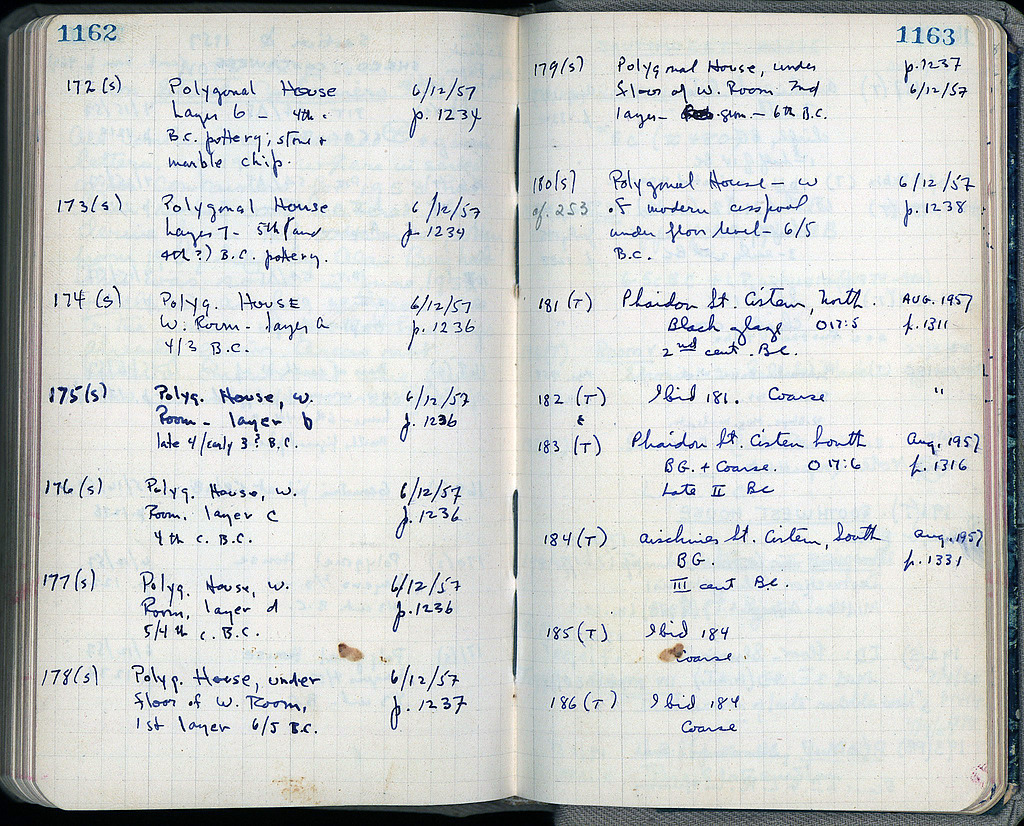 1162
172 (s) Polygonal House 6/12/57
Layer 6 - 4th p. 1234
B.C. pottery; stone +
marble chip.
173 (s) Polygonal House 6/12/57
Layer 7 - 5th (and p. 1234
4th ?) B.C. pottery.
174 (s) Polyg. House 6/12/57
W. Room - layer a p. 1236
4/3 B.C.
175 (s) Polyg. House, W. 6/12/57
Room - layer b p. 1236
late 4/early 3? B.C.
176 (s) Polyg. House, W. 6/12/57
Room. layer c p. 1236
4th c. B.C.
177 (s) Polyg. House, W. 6/12/57
Room, layer d p. 1236
5/4th c. B.C.
178 (s) Polyg. House, under 6/12/57
floor of W. Room, p. 1237
1st layer 6/5 B.C.
1163
179 (s) Polygonal House, under p. 1237
floor of W. Room 2nd 6/12/57
layer - 6th B.C.
180 (s) Polygonal House - W 6/12/57
cf. 253 of modern cesspool p. 1238
under floor level - 6/5
B.C.
181 (T) Phaidon St. Cistern, North. AUG. 1957
Black glaze O 17:5 p. 1311
2nd cent. B.C.
182 (T) Ibid 181. Coarse "
&
183 (T) Phaidon St. Cistern South Aug. 1957
BG. + Coarse. O 17:6 p. 1316
Late II BC
184 (T) Aischines St. Cistern, South Aug. 1957
BG. p. 1331
III cent BC.
185 (T) Ibid 184
Coarse.
186 (T) Ibid 184
Coarse